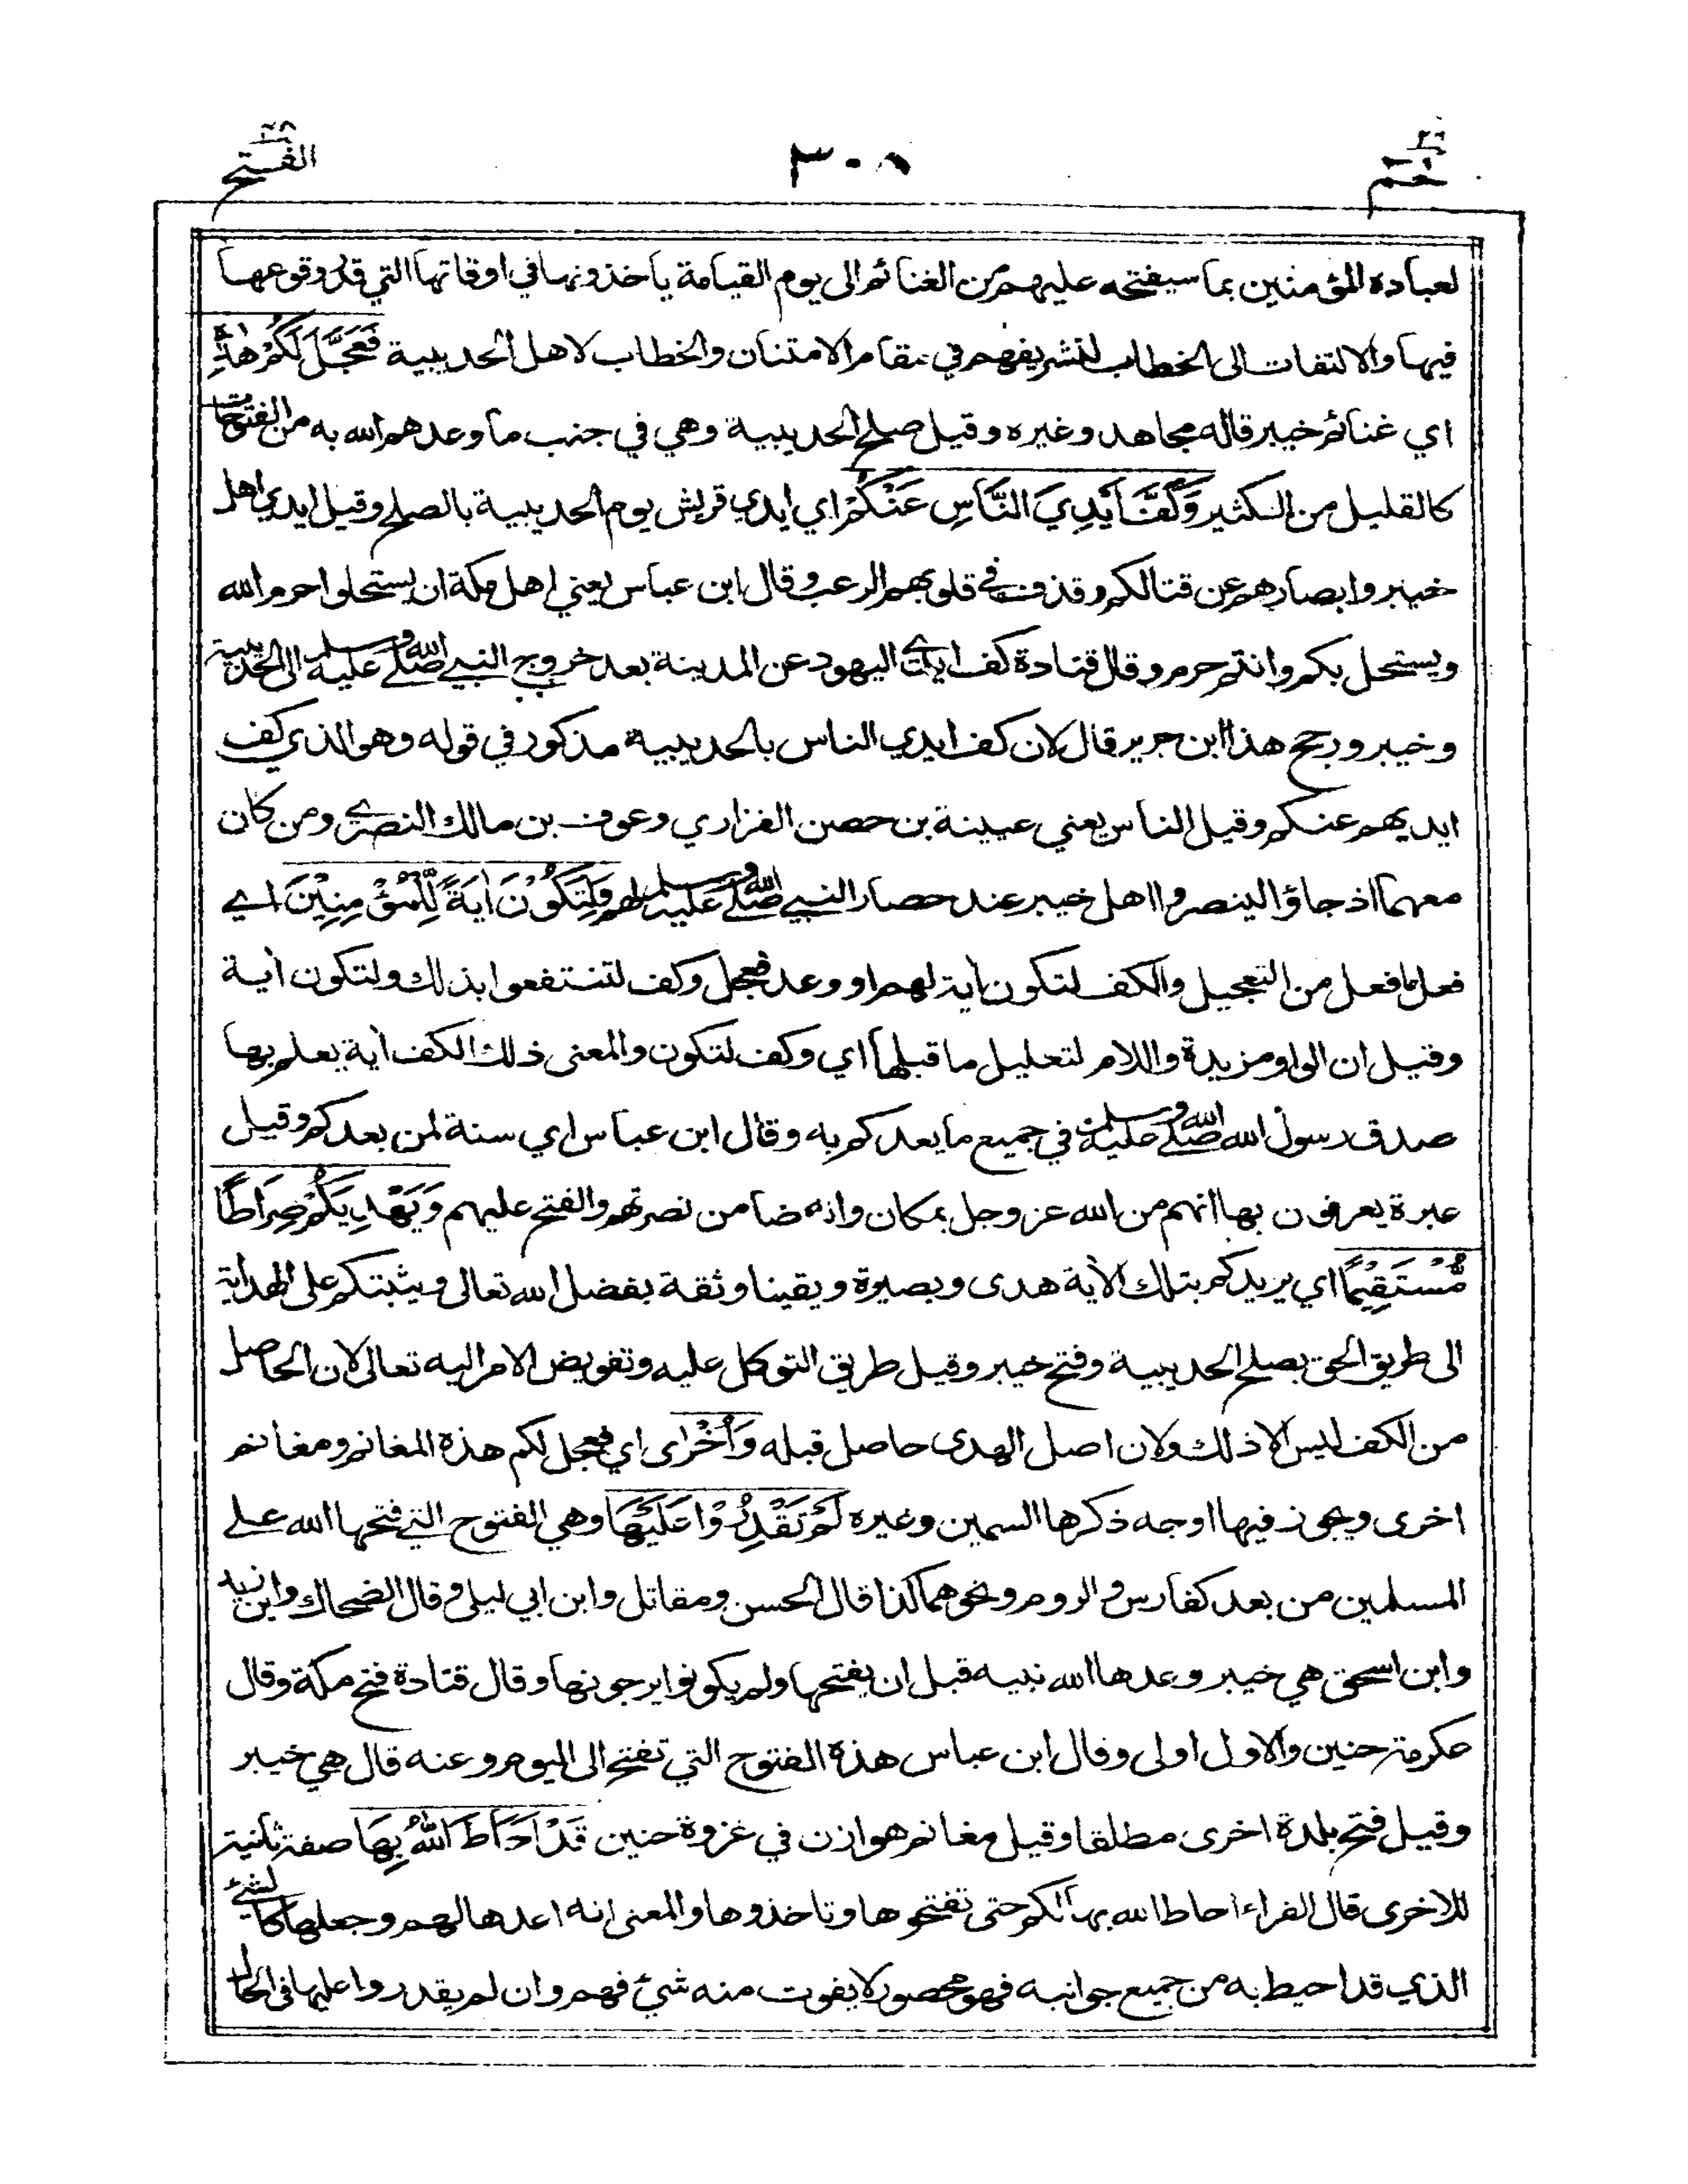 حم ٢٦
٣٠٨
الفتح ٤٨
لعباده المؤمنين بما سيفتحه عليهم من الغنائم الى يوم القيامة ياخذونها في اوقاتها التي قدر وقوعها
فيها والالتفات الى الخطاب لتشريفهم في مقام الامتنان والخطاب لاهل الحديبية فَعَجَّلَ لَكُمْ هٰذِهٖ
اي غنائم خيبر قاله مجاهد وغيره وقيل صلح الحديبية وهي في جنب ما وعدهم الله به من الفتوحات
كالقليل من الكثير وَكَفَّ اَيْدِيَ النَّاسِ عَنْكُمْ اي ايدي قريش يوم الحديبية بالصلح وقيل ايدي اهل
خيبر وابصارهم عن قتالكم وقذف في قلوبهم الرعب وقال ابن عباس يعني اهل مكة ان يستحلوا حرم الله
ويستحل بكم وانتم حرم وقال قتادة كف ايدي اليهود عن المدينة بعد خروج النبي صلى الله عليه وسلم الى الحديبية
وخيبر ورجح هذا ابن جرير قال لان كف ايدي الناس بالحديبية مذكور في قوله وهو الذي كف
ايديهم عنكم وقيل الناس يعني عيينة بن حصن الفزاري وعوف بن مالك النصري ومن كان
معهما اذ جاؤا لينصروا اهل خيبر عند حصار النبي صلى الله عليه وسلم لهم وَلِتَكُوْنَ اٰيَةً لِّلْمُؤْمِنِيْنَ اي
فعل ما فعل من التعجيل والكف لتكون أية لهم او وعد فعجل وكف لتنتفعوا بذلك ولتكون أية
وقيل ان الواو مزيدة واللام لتعليل ما قبلها اي وكف لتكون والمعنى ذلك الكف أية يعلم بها
صدق رسول الله صلى الله عليه وسلم في جميع ما يعدكم به وقال ابن عباس اي سنة لمن بعدكم وقيل
عبرة يعرفون بها انهم من الله عز وجل بمكان وانه ضامن نصرتهم والفتح عليهم وَيَهْدِيَكُمْ صِرَاطًا
مُّسْتَقِيْمًا اي يزيدكم بتلك الأية هدى وبصيرة ويقينا وثقة بفضل الله تعالى ويثبتكم على الهداية
الى طريق الحق بصلح الحديبية وفتح خيبر وقيل طريق التوكل عليه وتفويض الامر اليه تعالى لان الحاصل
من الكف ليس الا ذلك ولان اصل الهدى حاصل قبله وَاُخْرٰى اي فعجل لكم هذه المغانم ومغانم
اخرى ويجوز فيها اوجه ذكرها السمين وغيره لَمْ تَقْدِرُوْا عَلَيْهَا وهي الفتوح التي فتحها الله على
المسلمين من بعد كفارس والروم ونحوهما كذا قال الحسن ومقاتل وابن ابي ليلى وقال الضحاك وابن زيد
وابن اسحق هي خيبر وعدها الله نبيه قبل ان يفتحها ولم يكونوا يرجونها وقال قتادة فتح مكة وقال
عكرمة حنين والاول اولى وقال ابن عباس هذه الفتوح التي تفتح الى اليوم وعنه قال هي خيبر
وقيل فتح بلدة اخرى مطلقا وقيل مغانم هوازن في غزوة حنين قَدْ اَحَاطَ اللّٰهُ بِهَا صفة ثانية
للاخرى قال الفراء احاط الله بها لكم حتى تفتحوها وتاخذوها والمعنى انه اعدها لهم وجعلها كالشئ
الذي قد احيط به من جميع جوانبه فهو محصور لا يفوت منه شئ فهم وان لم يقدروا عليها في الحال